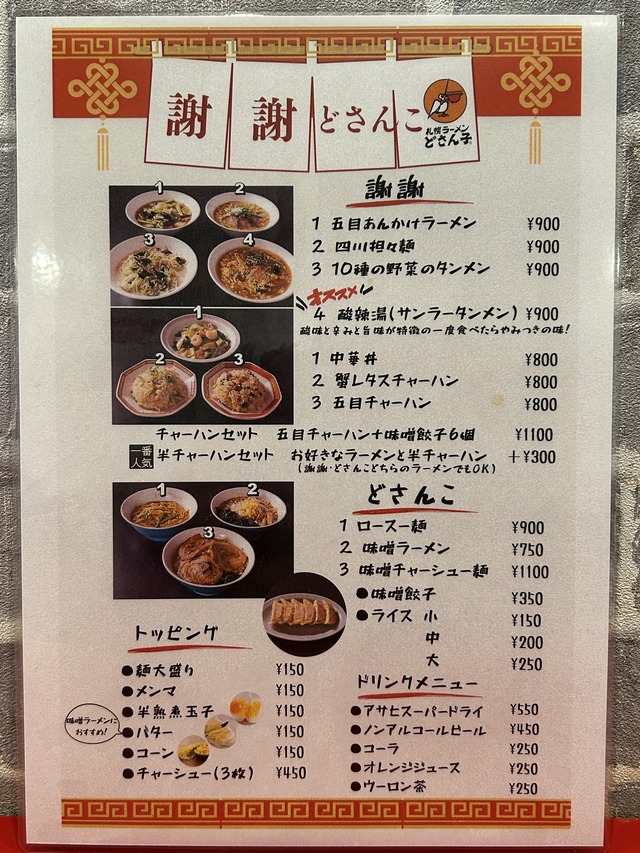 謝 謝 どさんこ
札幌ラーメン
どさん子
謝謝
1 五目あんかけラーメン ¥900
2 四川担々麺 ¥900
3 10種の野菜のタンメン ¥900
オススメ
4 酸辣湯(サンラータンメン) ¥900
酸味と辛みと旨味が特徴の一度食べたらやみつきの味!
1 中華丼 ¥800
2 蟹レタスチャーハン ¥800
3 五目チャーハン ¥800
チャーハンセット 五目チャーハン+味噌餃子6個 ¥1100
一番人気 半チャーハンセット お好きなラーメンと半チャーハン +¥300
(謝謝・どさんこどちらのラーメンでもOK)
どさんこ
1 ロースー麺 ¥900
2 味噌ラーメン ¥750
3 味噌チャーシュー麺 ¥1100
●味噌餃子 ¥350
●ライス 小 ¥150
中 ¥200
大 ¥250
トッピング
●麺大盛り ¥150
●メンマ ¥150
●半熟煮玉子 ¥150
味噌ラーメンに
おすすめ!
●バター ¥150
●コーン ¥150
●チャーシュー(3枚) ¥450
ドリンクメニュー
●アサヒスーパードライ ¥550
●ノンアルコールビール ¥450
●コーラ ¥250
●オレンジジュース ¥250
●ウーロン茶 ¥250
1
2
3
4
1
2
3
1
2
3